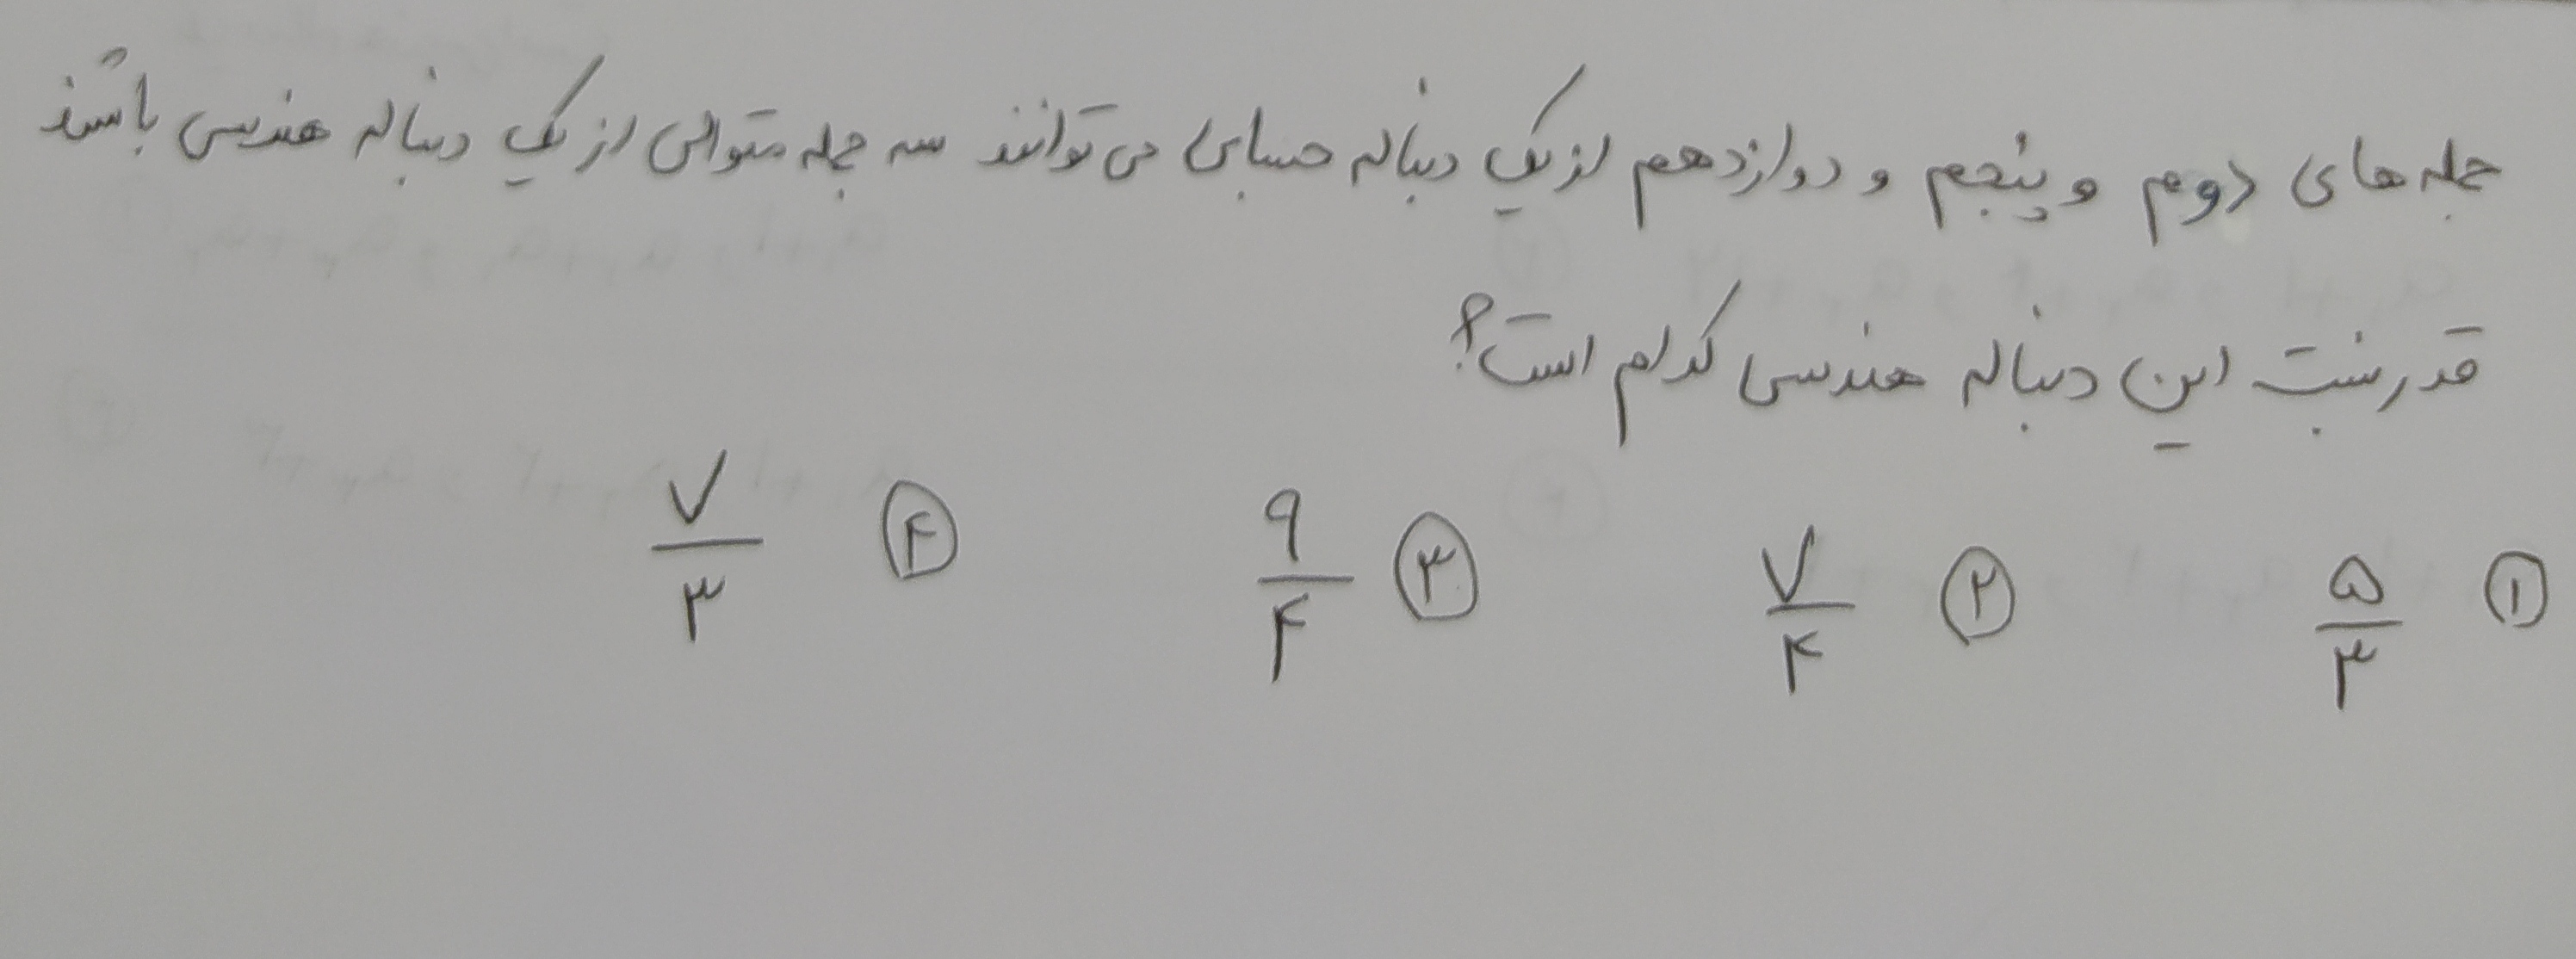 جمله های دوم و پنجم و دوازدهم از یک دنباله حسابی می توانند سه جمله متوالی از یک دنباله هندسی باشند
قدر نسبت این دنباله هندسی کدام است؟
۱ ۵/۳ ۲ ۷/۴ ۳ ۹/۴ ۴ ۷/۳